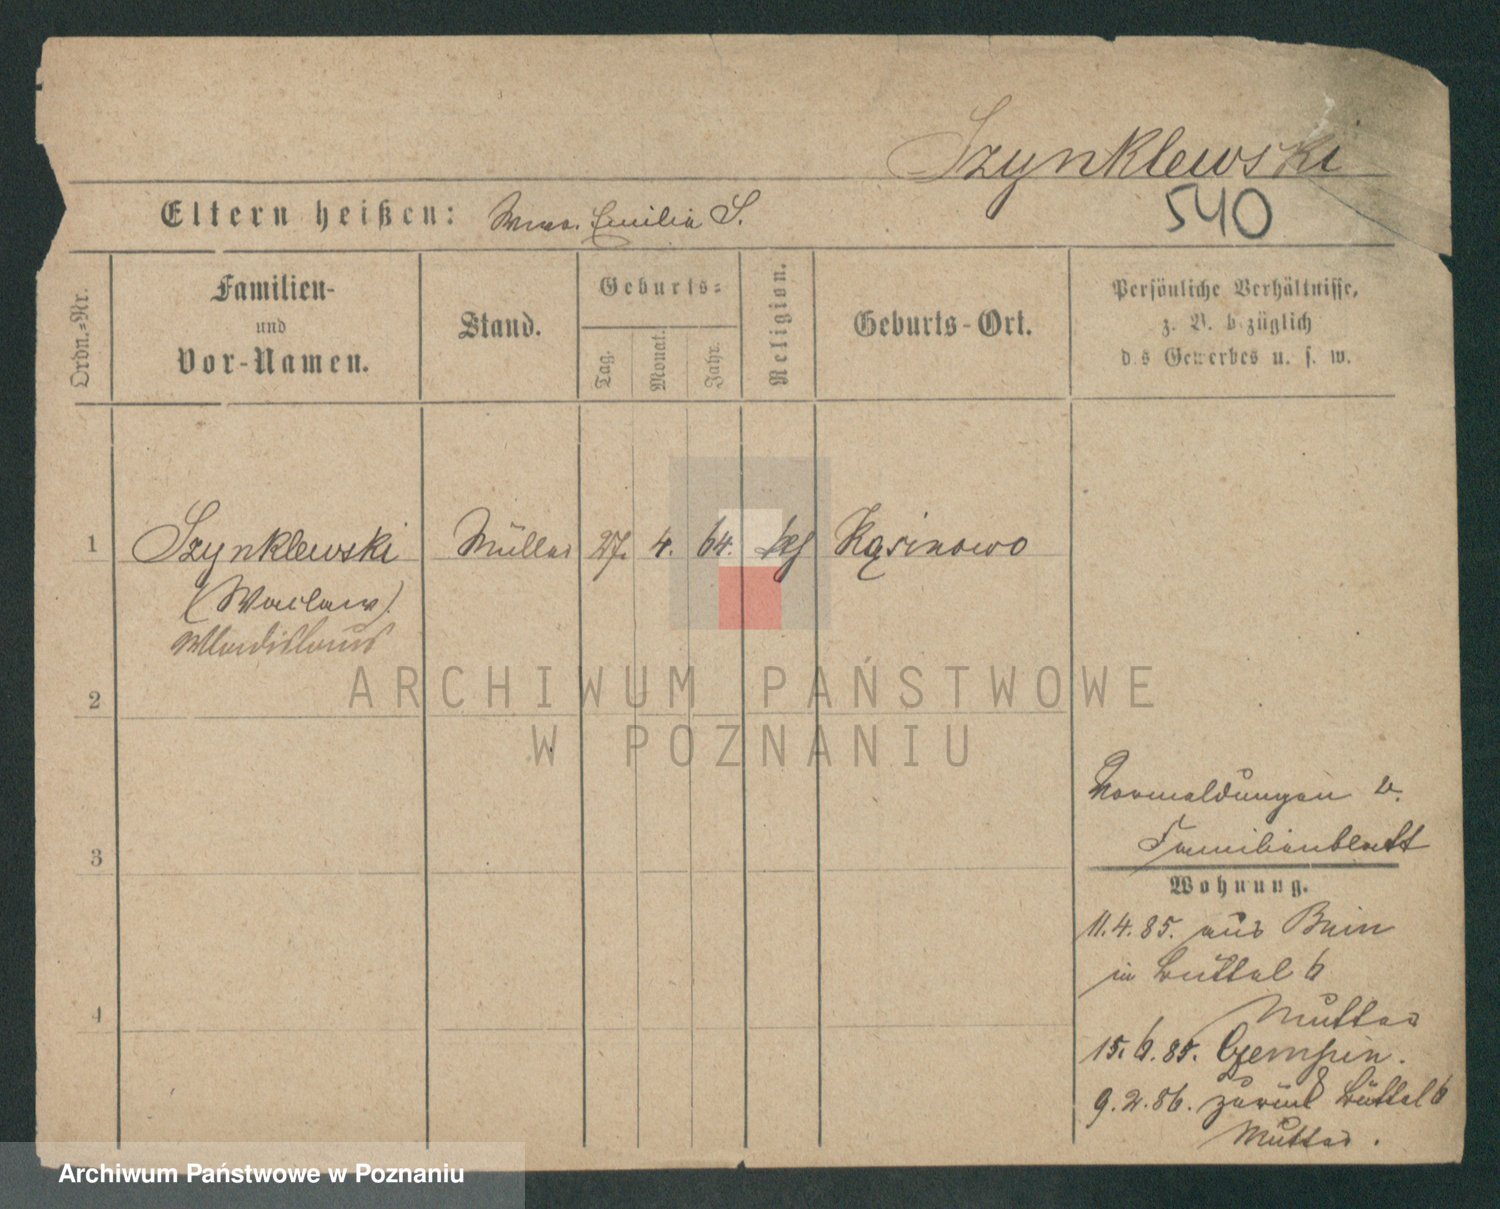 Szynklewski
540
Eltern heißen: Wwe. Emilia S.
Ordn.=Nr.
Familien-
und
Vor-Namen.
Stand.
Geburts=
Tag.
Monat.
Jahr.
Religion.
Geburts-Ort.
Persönliche Verhältnisse,
z. B. bezüglich
des Gewerbes u. s. w.
1 Szynklewski Müller 27. 4. 64. kf Kąsinowo
(Waclaw)
Wladislaus
2
ARCHIWUM PAŃSTWOWE
W POZNANIU
Vormeldungen v.
Familienblatt
3
Wohnung.
11.4.85. aus Bnin
in Büttel 6
Mutter
4
15.6.85. Czempin.
9.2.86. zurück Büttel 6
Mutter.
Archiwum Państwowe w Poznaniu